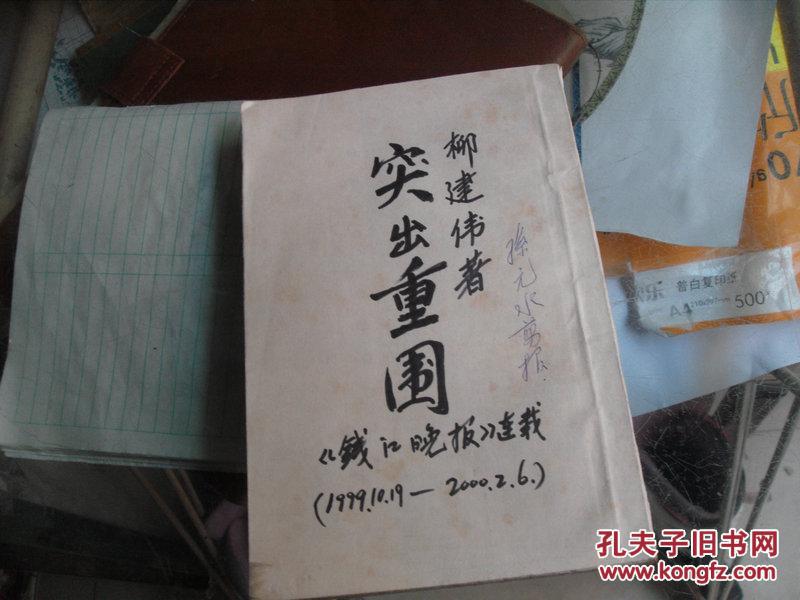 柳建伟著
突出重围
孫元水剪报.
《錢江晚报》连载
(1999.10.19—2000.2.6.)
乐 普白复印纸
A4 210x297mm 500
孔夫子旧书网
www.kongfz.com